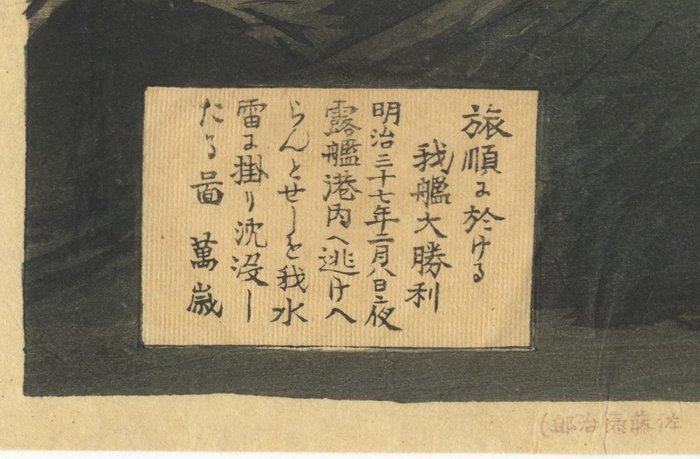 旅順に於ける
我艦大勝利
明治三十七年二月八日夜
露艦港内へ逃げへ
らんとせしを我水
雷に掛り沈没し
たる啚 萬歳